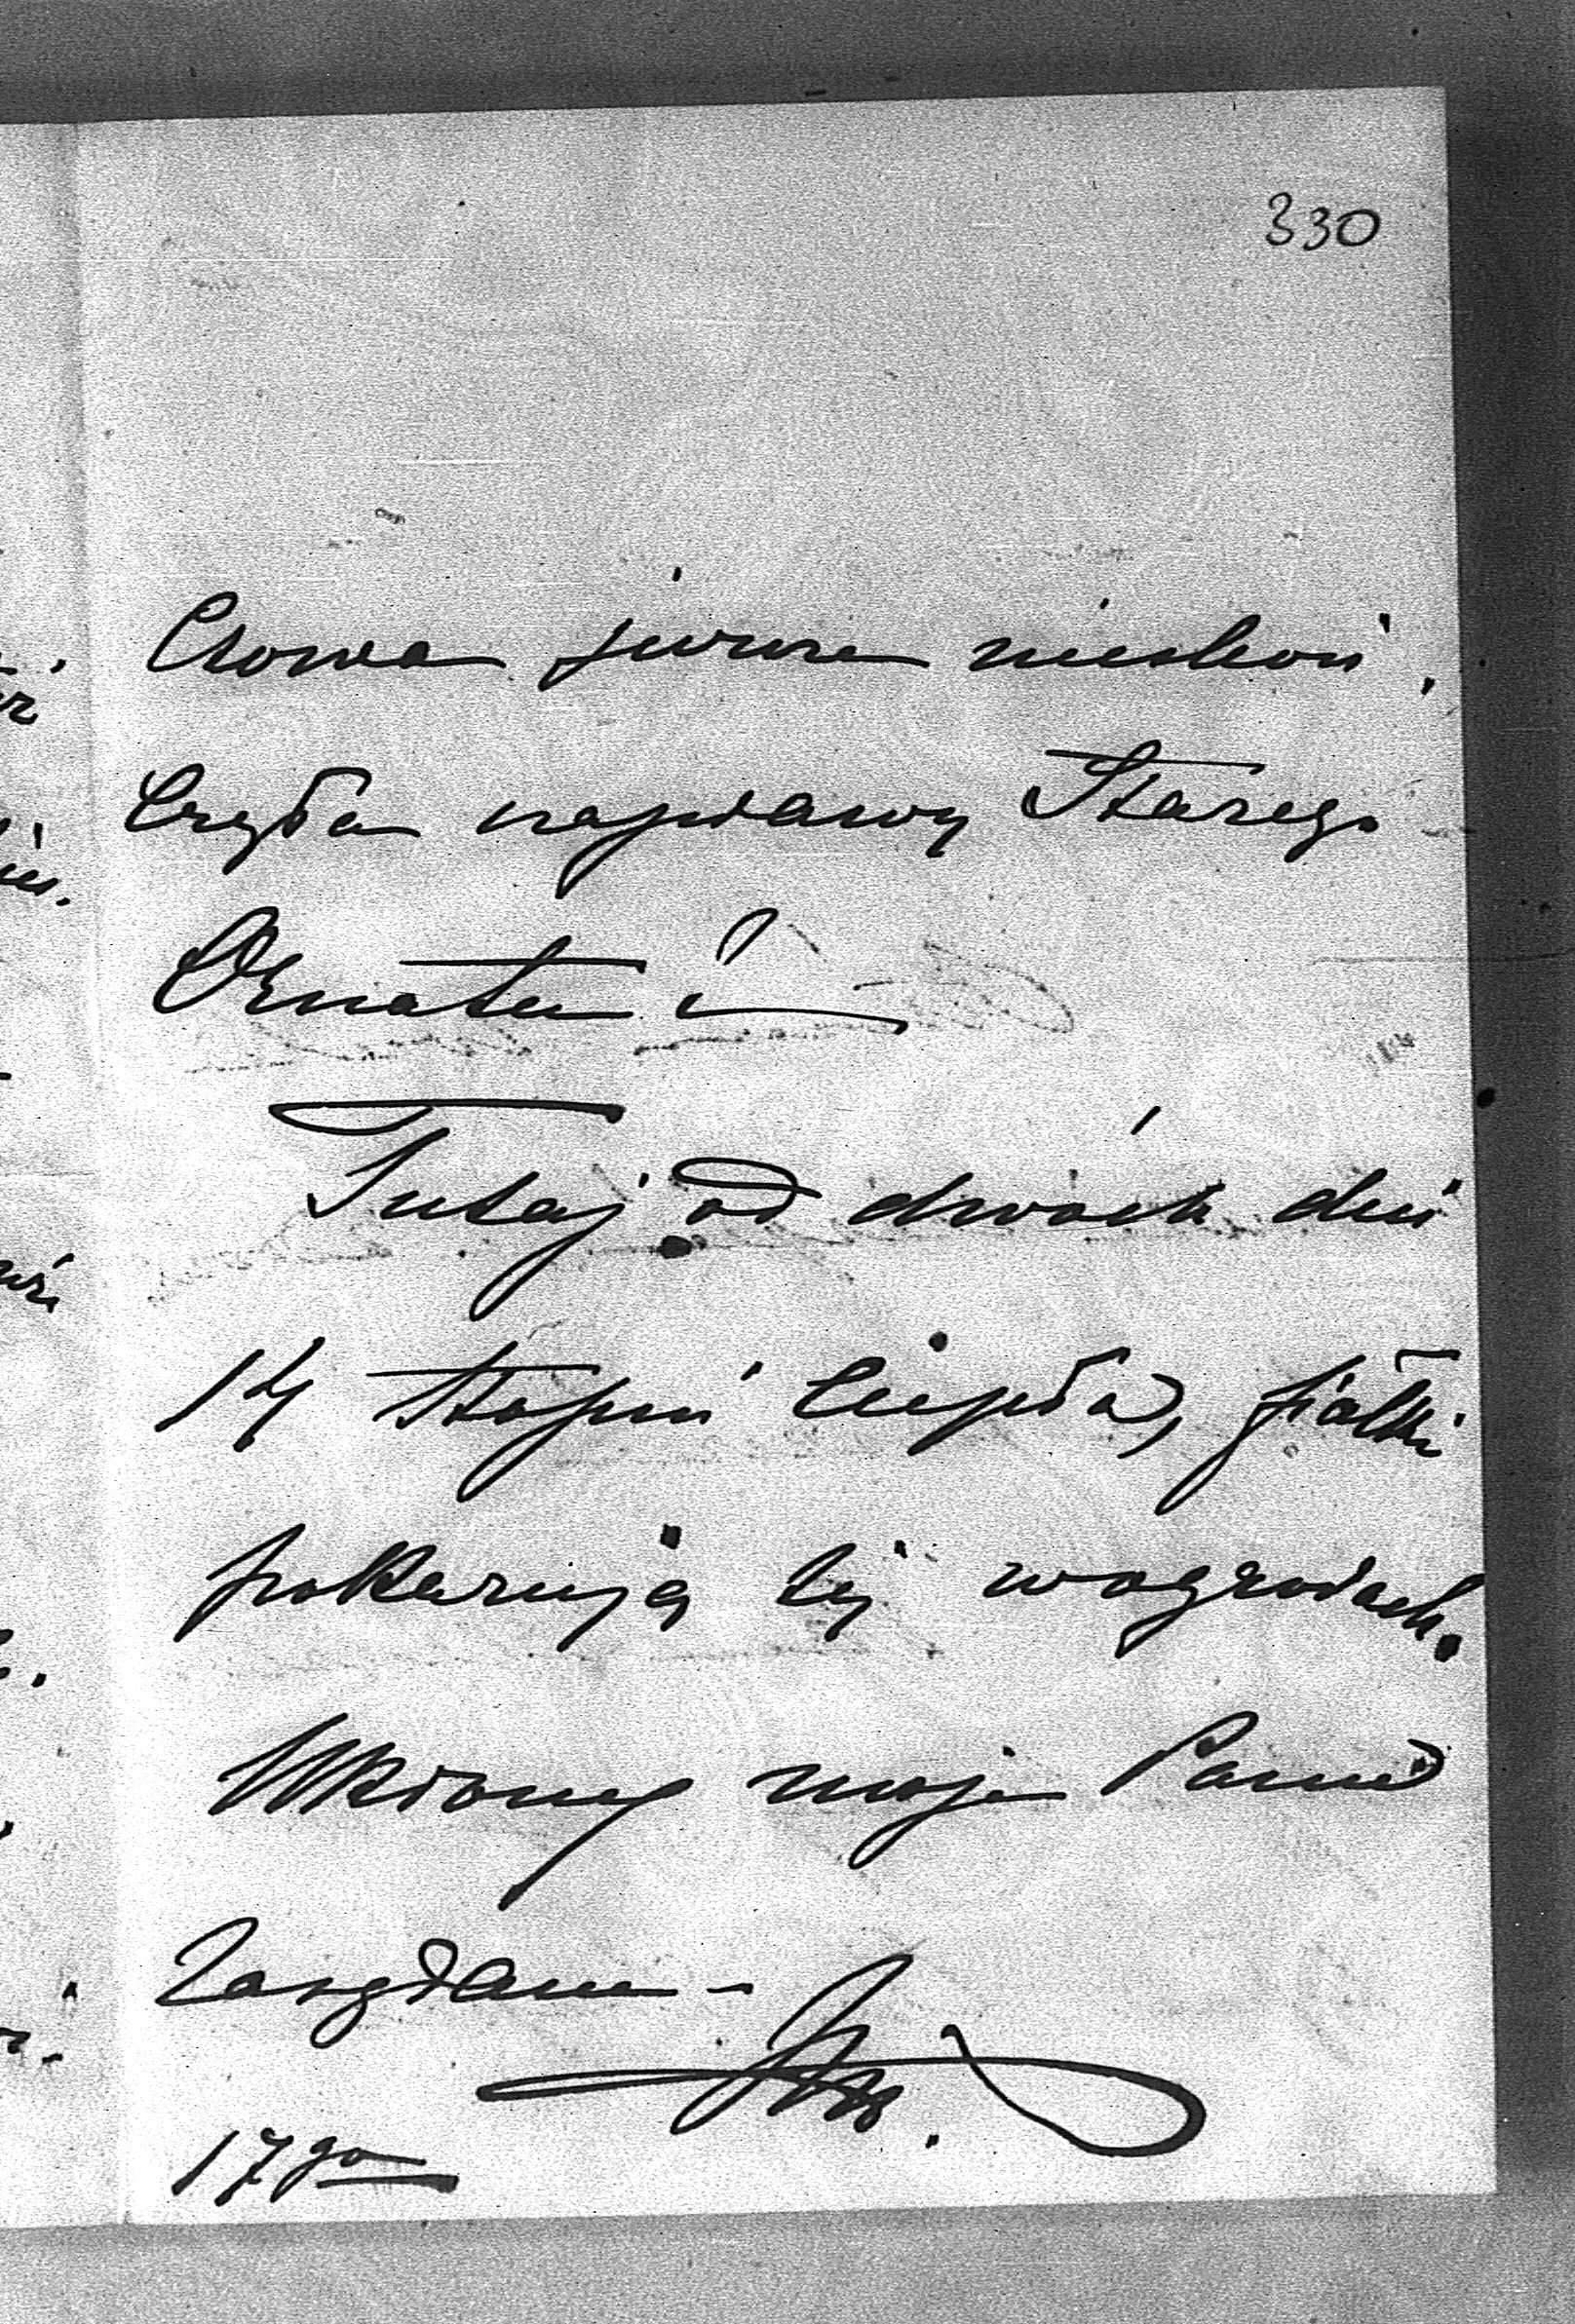 330
Cnowa jeszcze nieskoń.
czyła naprawy Starego
Ornatu i
Tutaj od dwóch dni
14 stopni ciepła, fiałki
pokazują się w ogrodach.
Ukłony moje Panu
zasyłam -
17go